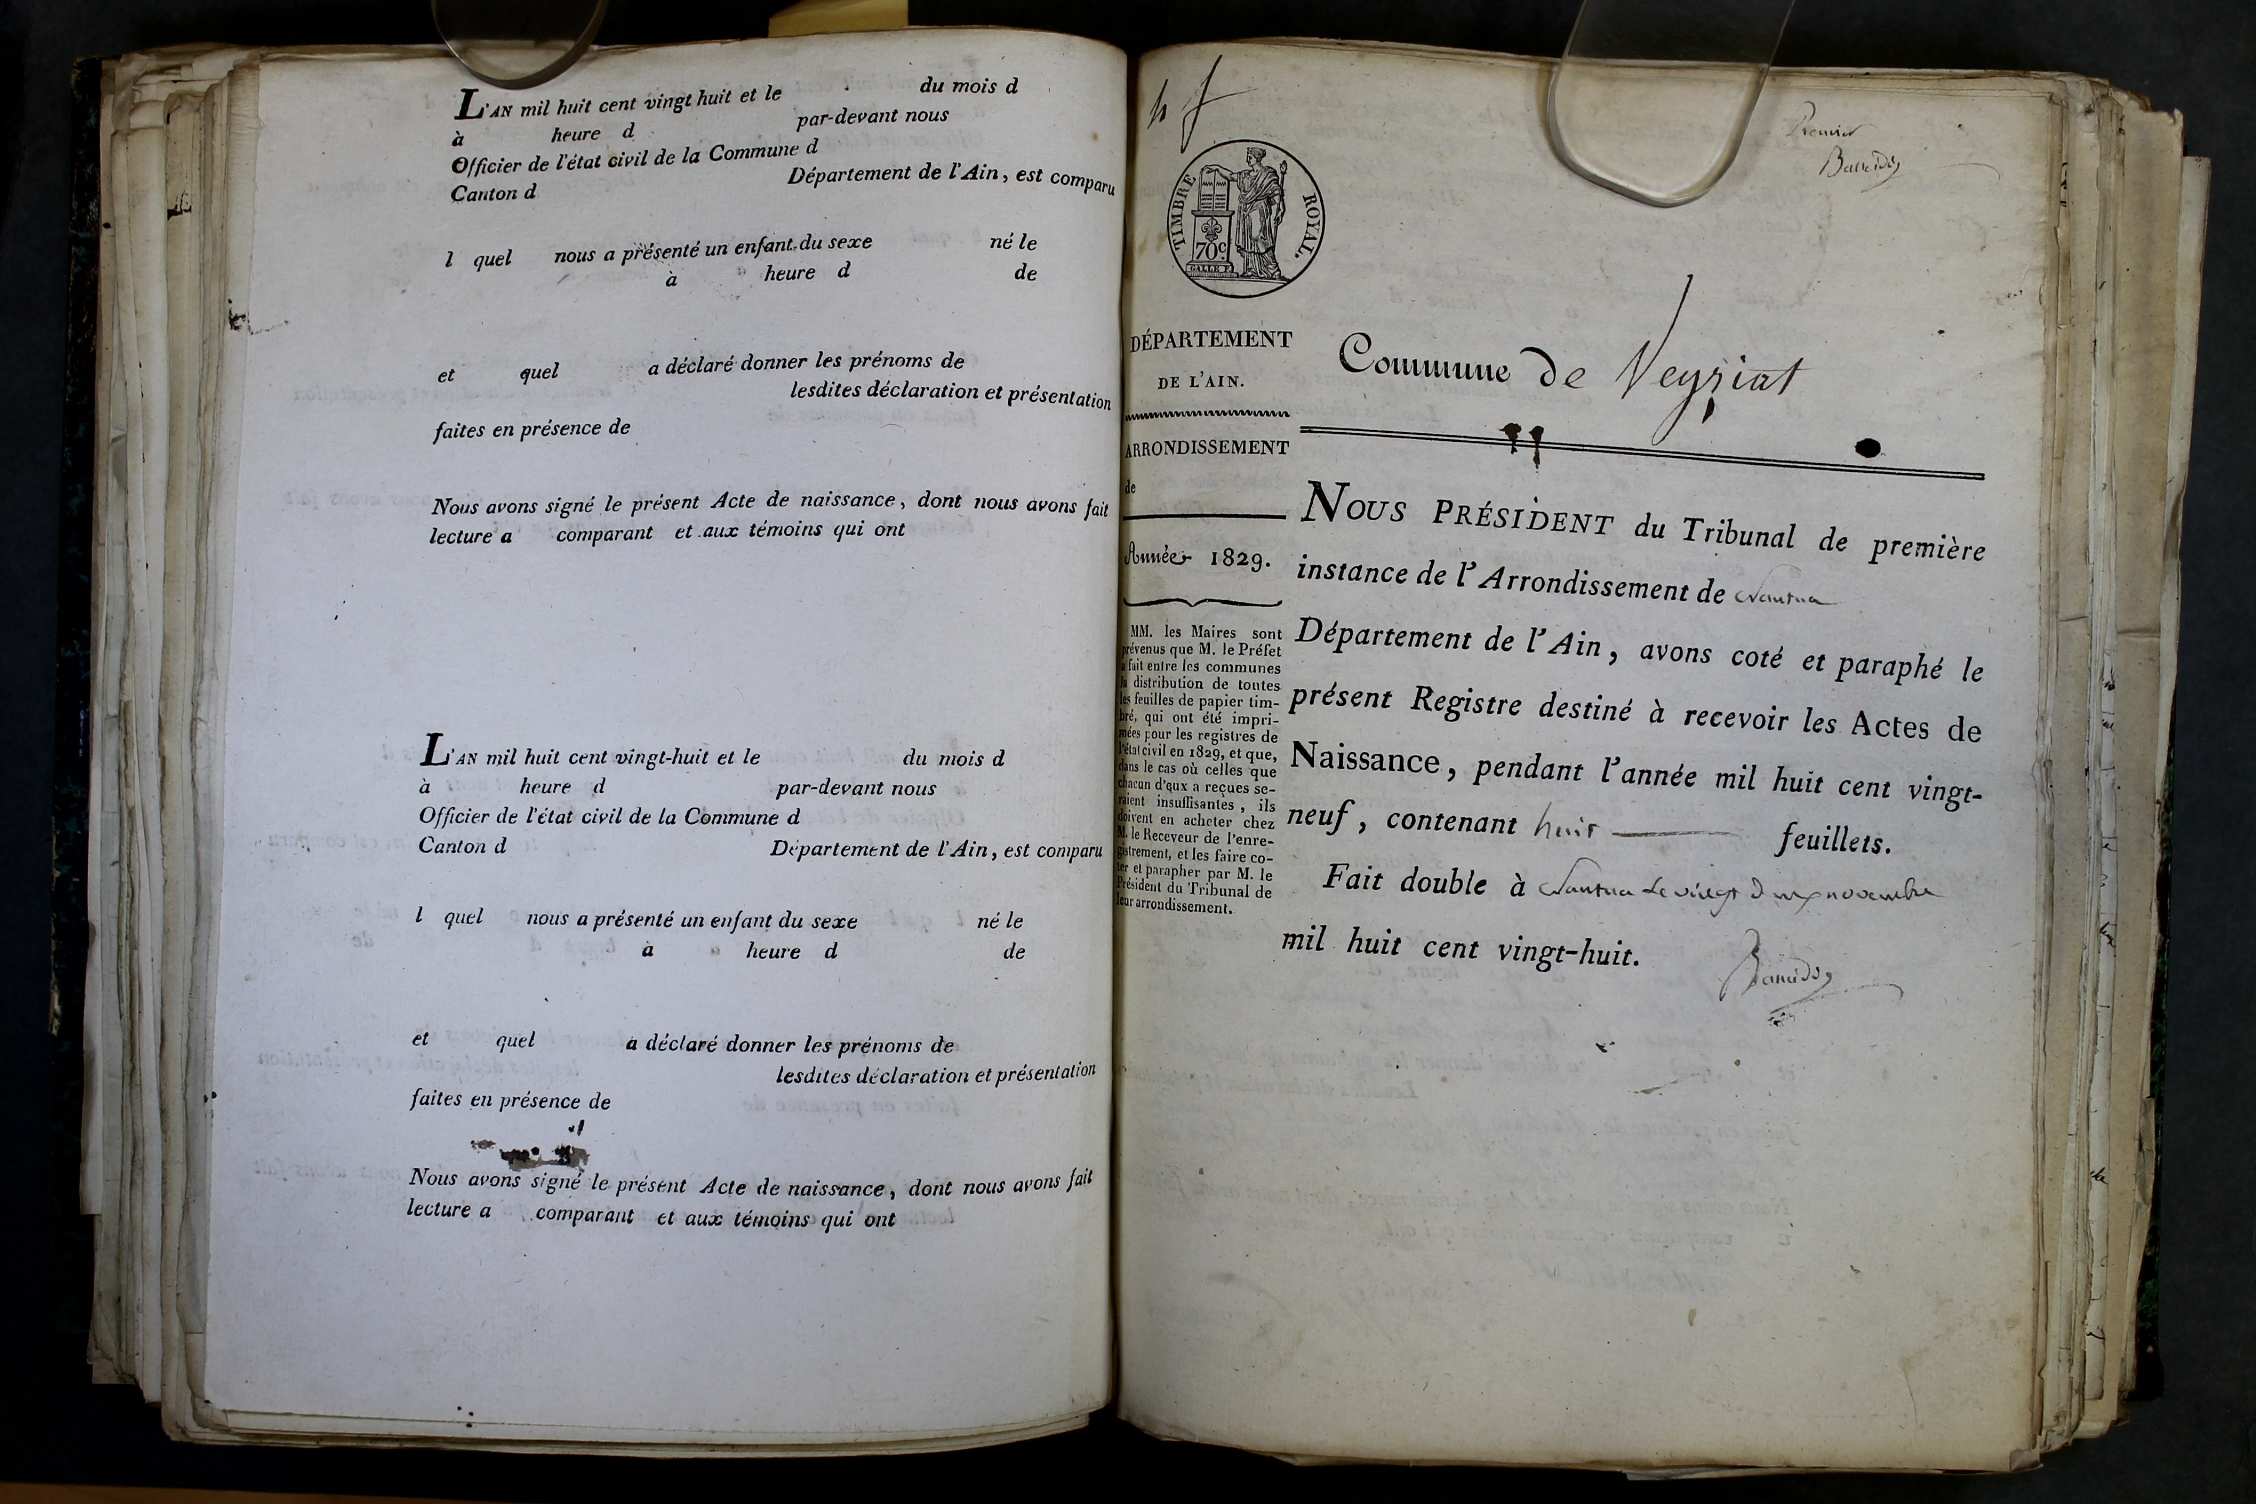 L'AN mil huit cent vingt huit et le du mois d
à heure d par-devant nous
Officier de l'état civil de la Commune d
Canton d Département de l'Ain, est comparu
l quel nous a présenté un enfant du sexe né le
à heure d de
et quel a déclaré donner les prénoms de
lesdites déclaration et présentation
faites en présence de
Nous avons signé le présent Acte de naissance, dont nous avons fait
lecture a comparant et aux témoins qui ont
L'AN mil huit cent vingt-huit et le du mois d
à heure d par-devant nous
Officier de l'état civil de la Commune d
Canton d Département de l'Ain, est comparu
l quel nous a présenté un enfant du sexe né le
à heure d de
et quel a déclaré donner les prénoms de
lesdites déclaration et présentation
faites en présence de
Nous avons signé le présent Acte de naissance, dont nous avons fait
lecture a comparant et aux témoins qui ont
Premier
TIMBRE ROYAL.
70c.
DÉPARTEMENT
DE L'AIN.
ARRONDISSEMENT
de
Année 1829.
MM. les Maires sont
prévenus que M. le Préfet
a fait entre les communes
la distribution de toutes
les feuilles de papier tim-
bré, qui ont été impri-
mées pour les registres de
l'état civil en 1829, et que,
dans le cas où celles que
chacun d'eux a reçues se-
raient insuffisantes, ils
doivent en acheter chez
M. le Receveur de l'enre-
gistrement, et les faire co-
ter et parapher par M. le
Président du Tribunal de
leur arrondissement.
Commune de Veyziat
NOUS PRÉSIDENT du Tribunal de première
instance de l'Arrondissement de Nantua
Département de l'Ain, avons coté et paraphé le
présent Registre destiné à recevoir les Actes de
Naissance, pendant l'année mil huit cent vingt-
neuf, contenant huit feuillets.
Fait double à Nantua le vingt novembre
mil huit cent vingt-huit.